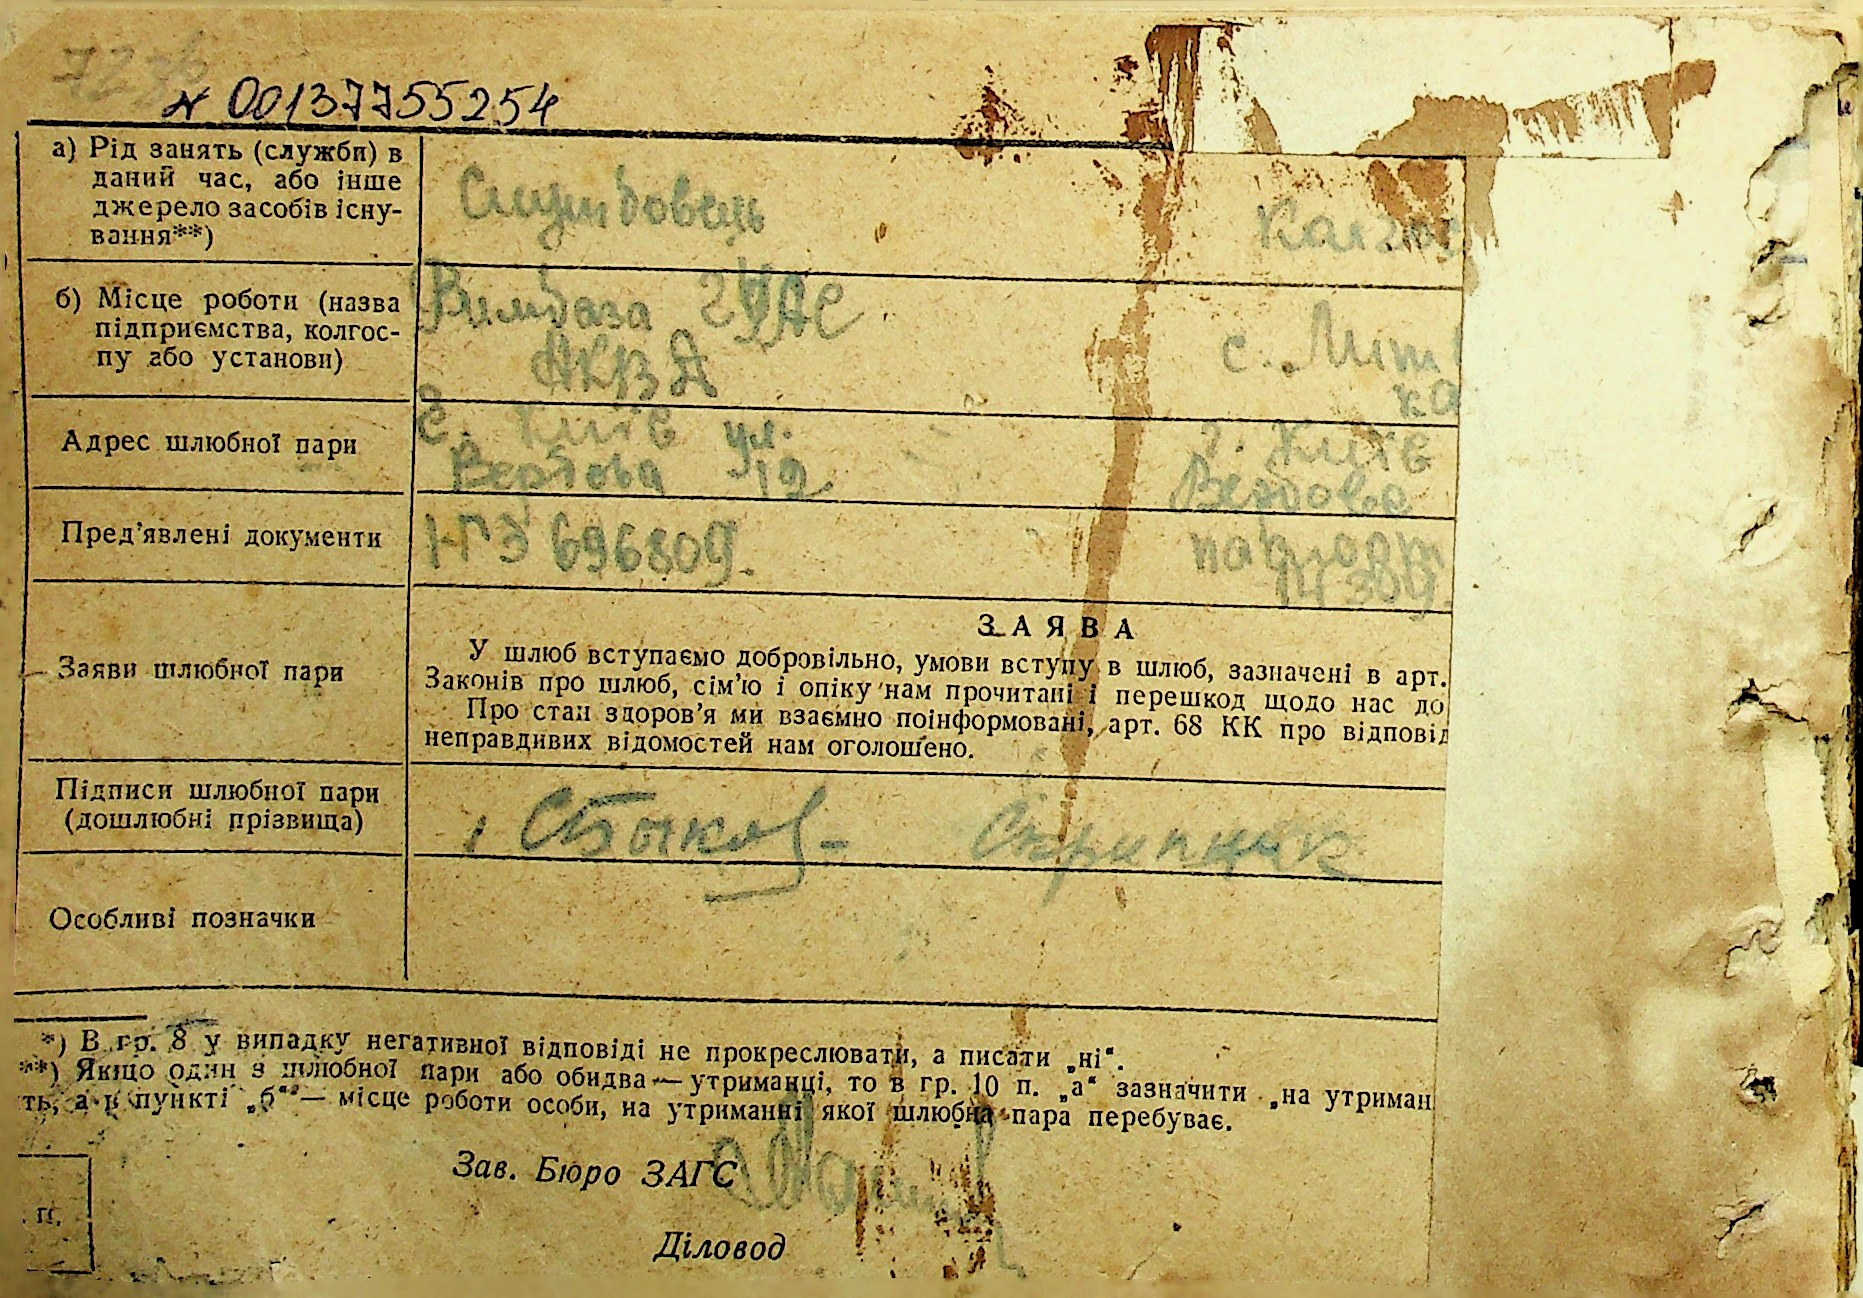 № 00137755254
а) Рід занять (служби) в
даний час, або інше
джерело засобів існу-
вання**)
Службовець
Колгос
б) Місце роботи (назва
підприємства, колгос-
пу або установи)
с.
Адрес шлюбної пари
г. Київ ул.
12
г. Київ
Пред'явлені документи
696809.
паспорт
Заяви шлюбної пари
ЗАЯВА
У шлюб вступаємо добровільно, умови вступу в шлюб, зазначені в арт.
Законів про шлюб, сім'ю і опіку нам прочитані і перешкод щодо нас до
Про стан здоров'я ми взаємно поінформовані, арт. 68 КК про відповід
неправдивих відомостей нам оголошено.
Підписи шлюбної пари
(дошлюбні прізвища)
Скрипник
Особливі позначки
*) В гр. 8 у випадку негативної відповіді не прокреслювати, а писати „ні“.
**) Якщо один з шлюбної пари або обидва — утриманці, то в гр. 10 п. „а“ зазначити „на утриман
ть, а в пункті „б“ — місце роботи особи, на утриманні якої шлюбна пара перебуває.
Зав. Бюро ЗАГС
П.
Діловод